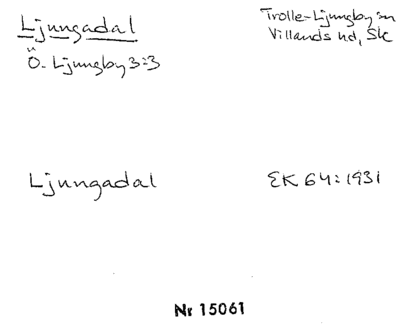 Ljungadal
Ö. Ljungby 3:3
Trolle-Ljungby sn
Villands hd, Sk
Ljungadal
EK 64:1931
Nr 15061